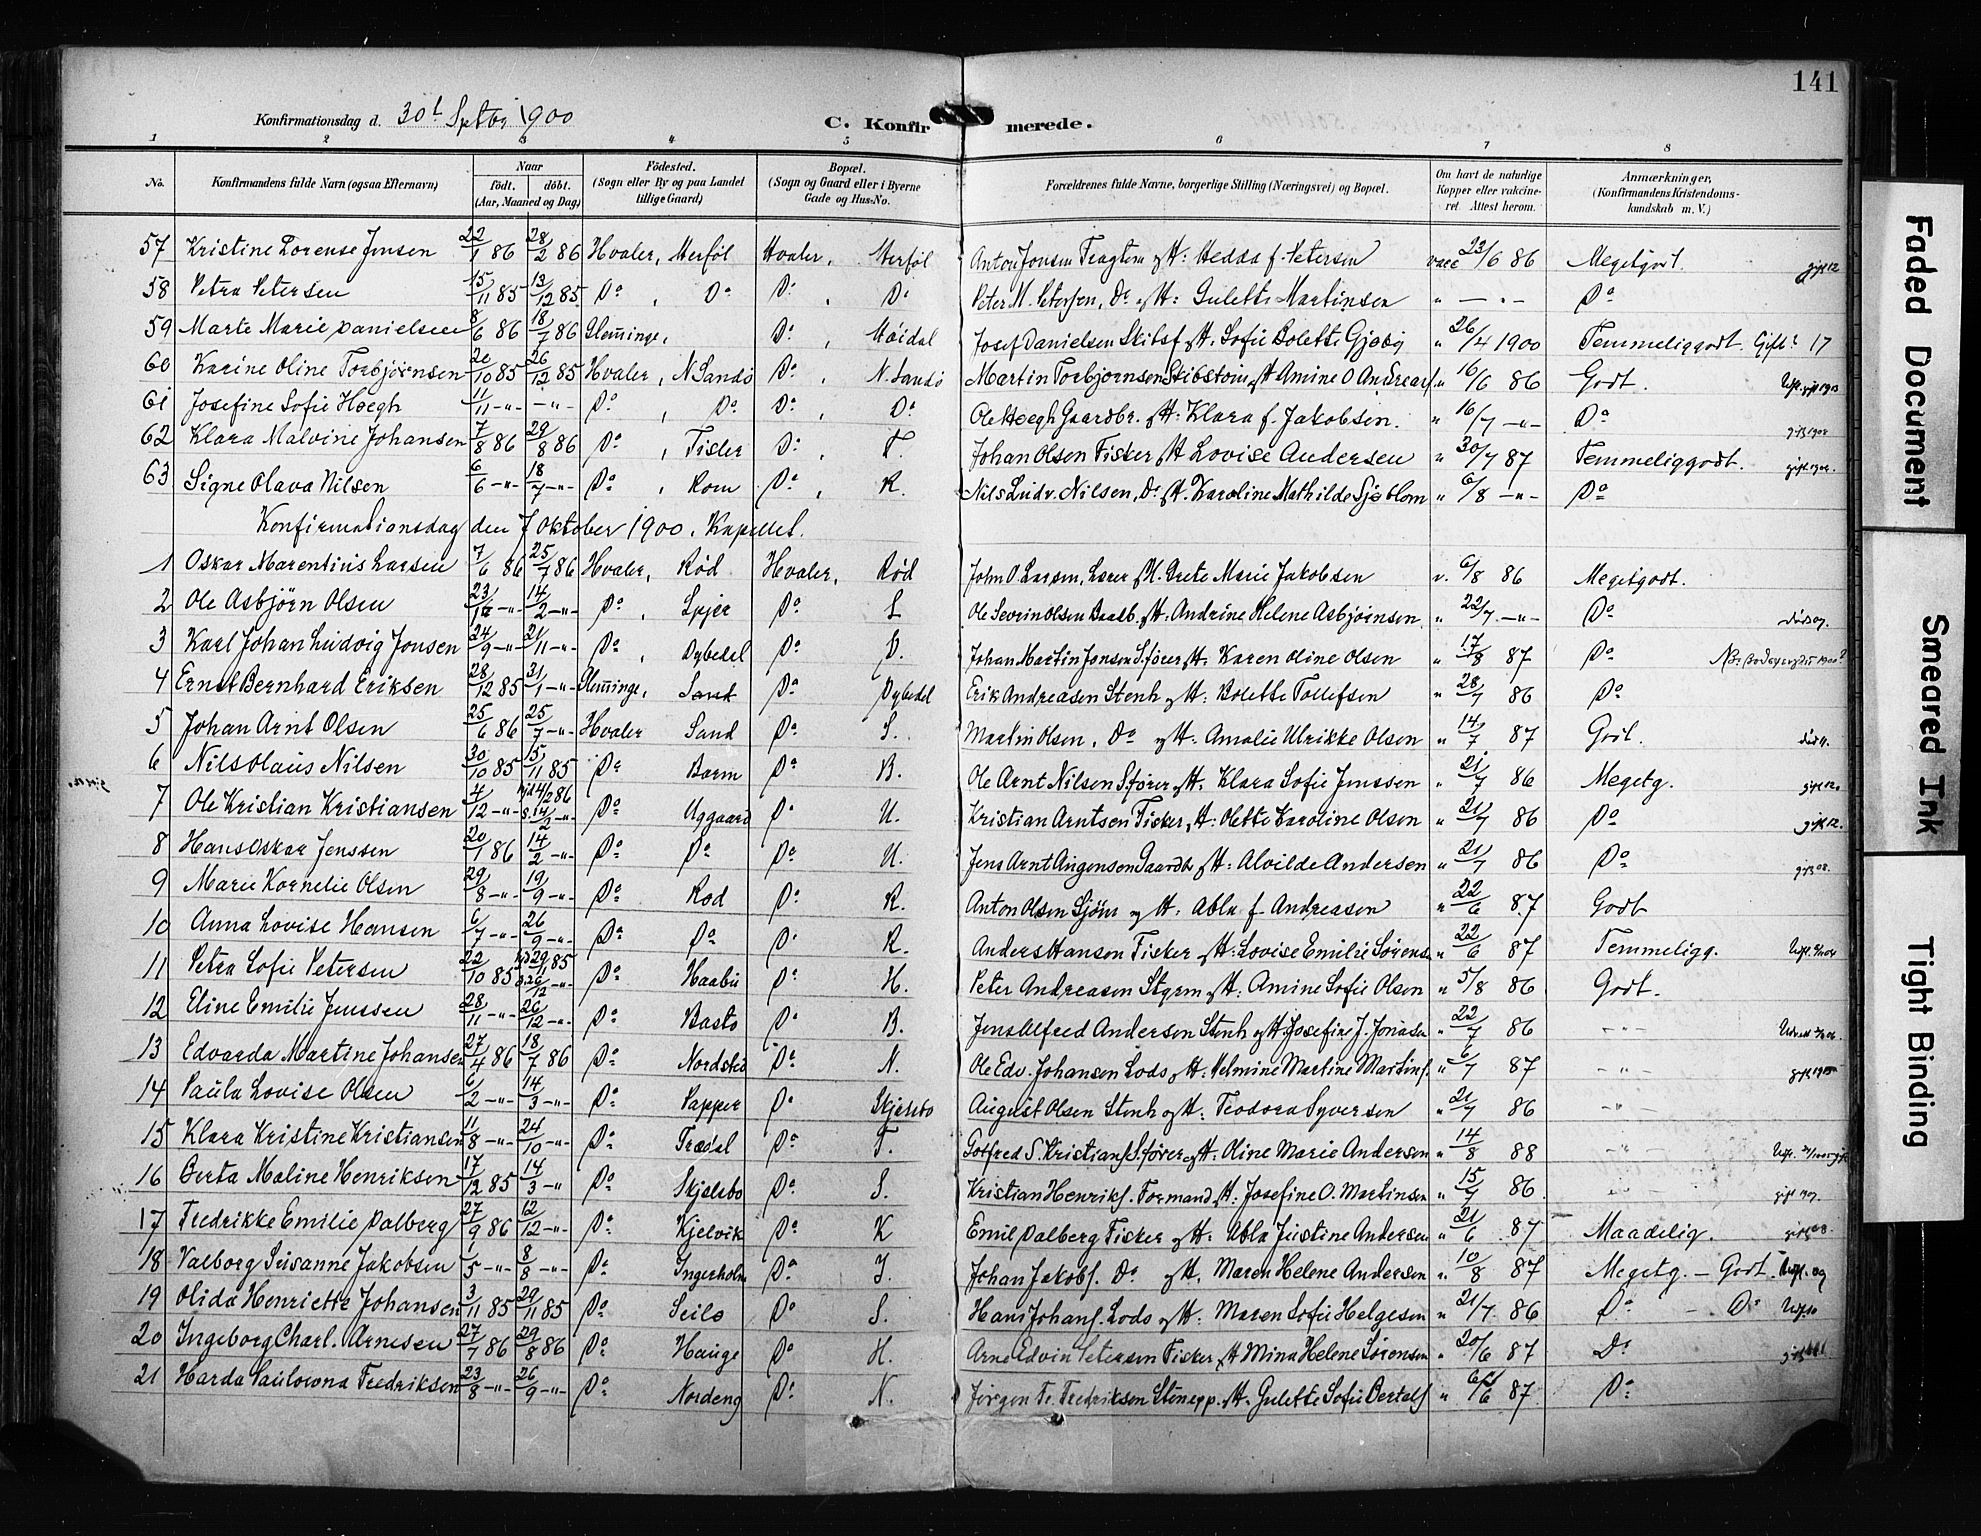 141
Konfirmationsdag d. 30t Septbr 1900 C. Konfirmerede.
1 2 3 4 5 6 7 8
No. Konfirmandens fulde Navn (ogsaa Efternavn) Naar født. døbt. (Aar, Maaned og Dag) Fødested. (Sogn eller By og paa Landet tillige Gaard) Bopæl. (Sogn og Gaard eller i Byerne Gade og Hus-No. Forældrenes fulde Navne, borgerlige Stilling (Næringsvei) og Bopæl. Om havt de naturlige Kopper eller vakcineret Attest herom. Anmærkninger, (Konfirmandens Kristendomskundskab m. V.)
57 Kristine Lorense Jensen 22/1 86 28/2 86 Hvaler, Herføl Hvaler, Herføl Anton Jensen Fragtem og H: Hedda f. Petersen vacc 23/6 86 Megetgodt. gift 12
58 Petra Petersen 15/11 85 13/12 85 Do , Do Do , Do Peter M. Petersen, Do og H: Gulette Martinsen " — " — Do
59 Marte Marie Danielsen 8/6 86 18/7 86 Glemminge, Do , Høidal Josef Danielsen Skibsf. og H. Sofie Bolette Gjøby " 26/4 1900 Temmeliggodt. Gift 17
60 Karine Oline Torbjørnsen 20/10 85 26/12 85 Hvaler, N Sandø Do , N. Sandø Martin Torbjørnsen Skibstøm. og H Amine O Andreasf. " 16/6 86 Godt.
61 Josefine Sofie Høegh 11/11 -"- -"- Do , Do Do , Do Ole Høegh Gaardbr. og H: Klara f. Jakobsen. " 16/7 -"- Do
62 Klara Malvine Johansen 7/8 86 29/8 86 Do , Tisler Do , T. Johan Olsen Fisker og H Lovise Andersen " 30/7 87 Temmeliggodt.
63 Signe Olava Nilsen 6/6 -"- 18/7 -"- Do , Rom Do , R. Nils Ludv. Nilsen, Do og H. Karoline Mathilde Sjøblom " 6/8 -"- Do
Konfirmationsdag den 7 Oktober 1900. Kapellet.
1 Oskar Marentius Larsen 7/6 86 25/7 86 Hvaler, Rød Hvaler, Rød John O. Larsen, Lærer og H. Grete Marie Jakobsen v. 6/8 86 Megetgodt.
2 Ole Asbjørn Olsen 23/ -"- 14/2 -"- Do , Spjer Do S Ole Severin Olsen Baadb. og H. Andrine Helene Asbjørnsen. " 22/7 -"- Do
3 Karl Johan Ludvig Jonsen 24/9 -"- 21/11 -"- Do , Dybedal Do D. Johan Martin Jonsen S.fører og H. Karen Oline Olsen " 17/8 87 Do
4 Ernst Bernhard Eriksen 28/12 85 31/1 -"- Glemminge, Sand Do Dybedal Erik Andreasen Stenh og H: Bolette Tollefsen " 28/7 86 Do
5 Johan Arnt Olsen 25/6 86 25/7 -"- Hvaler Sand Do S. Martin Olsen, Do og H. Amalie Ulrikke Olsen " 14/7 87 Godt.
6 Nils Olaus Nilsen 30/10 85 15/11 85 Do Barm Do B. Ole Arnt Nilsen S.fører og H. Klara Sofie Jenssen " 21/7 86 Megetg.
7 Ole Kristian Kristiansen 4/12 -"- hjd 4/2 86 s. 14/2 -"- Do Uggaard Do U. Kristian Arntsen Fisker og H: Olette Karoline Olsen " 21/7 86 Do gift 12.
8 Hans Oskar Jenssen 20/1 86 14/2 -"- Do Do Do U. Jens Arnt Gaardb og H: Alvilde Andersen " 21/7 86 Do
9 Marie Kornelie Olsen 29/8 -"- 19/9 -"- Do Rød Do R. Anton Olsen Sjøm og H: Abla f. Andreasen " 22/6 87 Godt
10 Anna Lovise Hansen 6/7 -"- 26/9 -"- Do Do Do R. Anders Hansen Fisker og H: Lovise Emilie Sørens " 22/6 87 Temmeligg.
11 Petra Sofie Petersen 22/10 85 hjd 29/11 85 s. 26/12 -"- Do Haabu Do H. Peter Andreasen Styrm og H: Amine Sofie Olsen " 5/8 86 Godt.
12 Eline Emilie Jenssen 28/11 -"- 26/12 -"- Do Basto Do B. Jens Alfred Andersen Stenh og H: Josefine J. Jonasen " 22/7 86 -"-
13 Edvarda Martine Johansen 27/4 86 18/7 86 Do Nordsted Do N. Ole Edv. Johansen Lods og H. Helmine Martine Martinf. " 6/7 87 -"-
14 Paula Lovise Olsen 6/2 -"- 14/3 -"- Do Papper Do Skjelsbo August Olsen Stenh og H: Teodora Syversen " 21/7 86 -"-
15 Klara Kristine Kristiansen 11/8 -"- 24/10 -"- Do Trædal Do T. Gotfred S. Kristians S.fører og H: Oline Marie Andersen " 14/8 88 -"-
16 Berta Maline Henriksen 17/12 85 14/3 -"- Do Skjelsbo Do S. Kristian Henriks. Formand og H: Josefine O. Martinsen " 15/7 86. -"- gift 1907.
17 Fredrikke Emilie Dalberg 27/9 86 12/12 -"- Do Kjelvik Do K Emil Dalberg Fisker og H: Abla Justine Andersen " 21/6 87 Maadelig.
18 Valborg Susanne Jakobsen 1/5 -"- 8/8 -"- Do Ingerholm Do I. Johan Jakobs. Do og H. Maren Helene Andersen " 10/8 87 Megetg. - Godt.
19 Olida Henriette Johansen 3/11 85 29/11 85 Do Seilo Do S. Hans Johans. Lods og H. Maren Sofie Helgesen " 21/7 86 Do - Do
20 Ingeborg Charl. Arnesen 27/7 86 29/8 86 Do Hauge Do H. Arne Edvin Petersen Fisker og H Mina Helene Sørensen " 20/6 87 Do
21 Harda Paulowna Fredriksen 23/8 -"- 26/9 -"- Do Nordeng Do N. Jørgen Fr. Fredriksen Stenepp. og H. Gulette Sofie Bertels " 6/6 87 Do
Faded Document
Smeared Ink
Tight Binding